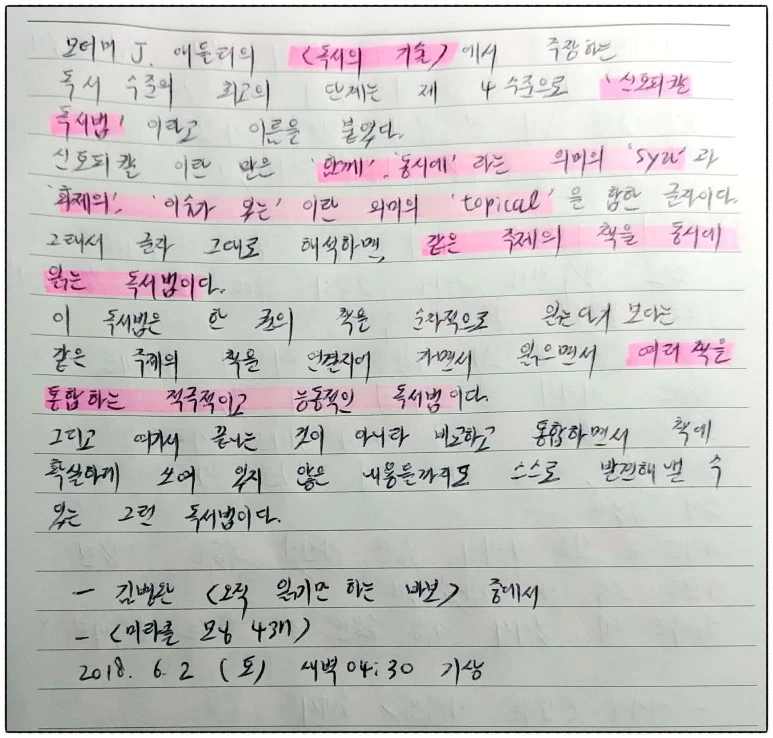 모티머 J. 애들러의 <독서의 기술>에서 주장하는
독서 수준의 최고의 단계는 제 4 수준으로 '신토피칼
독서법' 이라고 이름을 붙였다.
신토피칼 이란 말은 '함께', '동시에' 라는 의미의 'syn'과
'화제의', '이슈가 있는' 이란 의미의 'topical' 을 합한 글자이다.
그래서 글자 그대로 해석하면, 같은 주제의 책을 동시에
읽는 독서법이다.
이 독서법은 한 권의 책을 순차적으로 읽는다기 보다는
같은 주제의 책을 연결지어 가면서 읽으면서 여러 책을
통합하는 적극적이고 능동적인 독서법이다.
그리고 여기서 끝나는 것이 아니라 비교하고 통합하면서 책에
확실하게 쓰여 있지 않은 내용들까지도 스스로 발견해 낼 수
있는 그런 독서법이다.
- 김병완 <오직 읽기만 하는 바보> 중에서
- <미라클 모닝 43H>
2018. 6. 2 (토) 새벽 04:30 기상